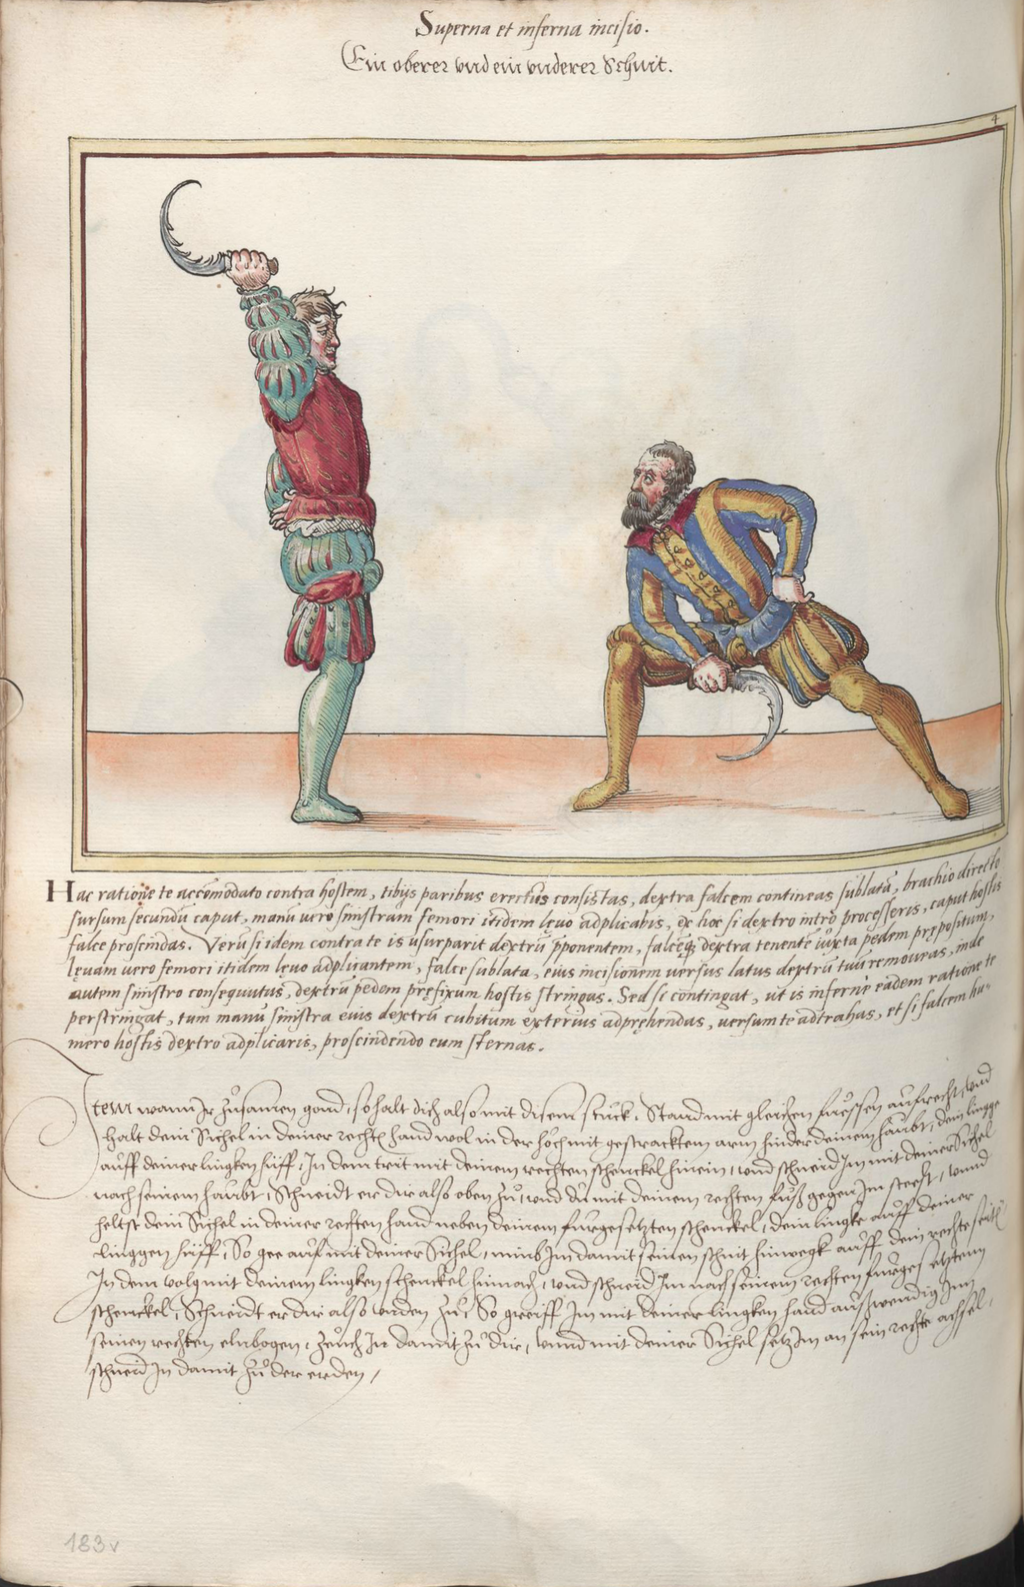 Superna et inferna incisio.
Ein oberer vnd ein vnderer Schnit.
4
Hac ratione te accōmodato contra hostem, tibijs paribus erectus consistas, dextra falcem contineas sublatā, brachio directo
sursum secundū caput, manū vero sinistram femori itidem lęvo adplicabis, ex hoc si dextro intro processeris, caput hostis
falce proscindas. Verū si idem contra te is usurparit dextrū ꝓponentem, falcēq; dextra tenentē iuxta pedem prępositum,
lęvam vero femori itidem lęvo adplicantem, falce sublata, eius incisionem versus latus dextrū tuū removeas, inde
autem sinistro consequutus, dextrū pedem pręfixum hostis stringas. Sed si contingat, ut is inferne eadem ratione te
perstringat, tum manū sinistra eius dextrū cubitum exterius adpręhendas, versum te adtrahas, et si falcem hu-
mero hostis dextro adplicaris, proscindendo eum sternas.
Item wann Ir zůsamen gond, so halt dich also mit disem stuck, Stand mit gleichen fuessen aufrecht, vnd
halt dein Sichel in deiner rechtē hand wol in der höch mit gestracktem arm hinder deinem haubt, dein lingge
auff deiner lingken hüff, In dem trit mit deinem rechten schenckel hinein, vnd schneid Im mit deiner Sichel
nach seinem haubt, Schneidt er dir also oben zů, vnd du mit deinem rechten fuß gegen Im steest, vnnd
heltst dein Sichel in deiner rechten hand neben deinem furgesetzten schenckel, dein lingke auff deiner
linggen hüff, So gee auf mit deiner Sichel, nimb Im damit seinen schnit hinwegk auff dein rechte seitē
In dem volg mit deinem lingken schenckel hinnach, vnd schneid Im nach seinem rechten furgesetztem
schenckel, Schneidt er dir also vnden zů, So greiff Im mit deiner lingken hand außwendig Inn
seinen rechten elnbogen, zeuch In damit zů dir, vnnd mit deiner Sichel setz Im an sein rechte achsel,
schneid In damit zů der erden,
183v